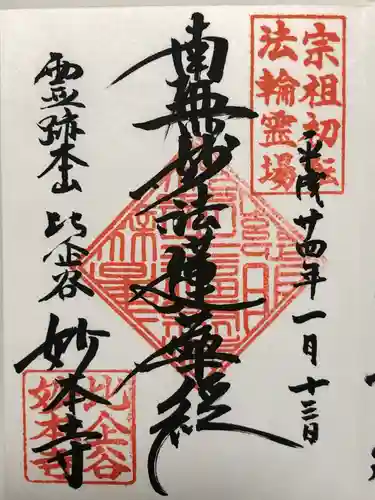 宗祖初転
法輪霊場
平成廿四年一月十三日
南無妙法蓮華経
霊跡本山 比企谷
妙本寺
比企谷
妙本寺